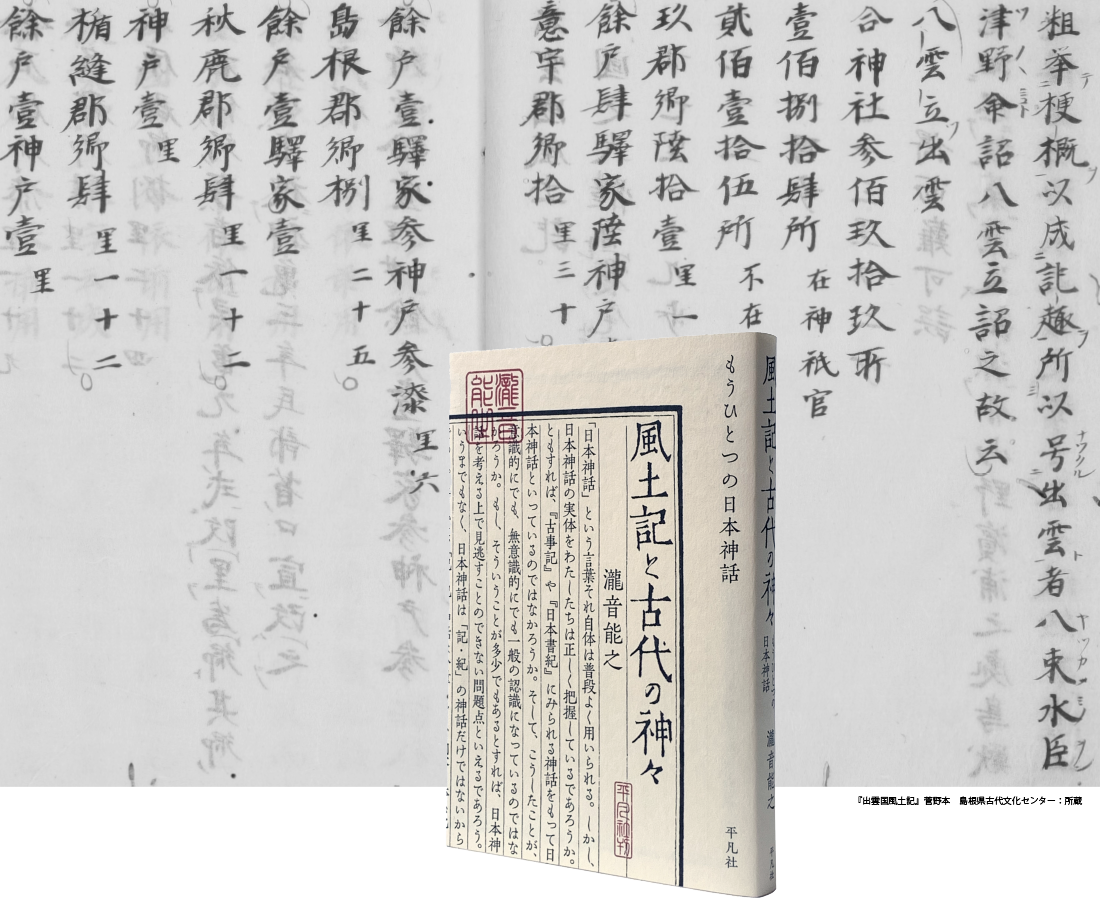 粗挙梗概以成記趣所以号出雲者八束水臣
津野命詔八雲立詔之故云
八雲立出雲
合神社参佰玖拾玖所
壹佰捌拾肆所 在神祇官
貮佰壹拾伍所 不在
玖郡郷陸拾壹 里一
餘戸肆驛家陸神戸
意宇郡郷拾 里三十
餘戸壹驛家参神戸参 里六
島根郡郷捌 里二十五
餘戸壹驛家壹
秋鹿郡郷肆 里一十二
神戸壹 里
楯縫郡郷肆 里一十二
餘戸壹神戸壹 里
風土記と古代の神々
もうひとつの日本神話
瀧音能之
平凡社
もうひとつの日本神話
平凡社
風土記と古代の神々
瀧音能之
「日本神話」という言葉それ自体は普段よく用いられる。しかし、
日本神話の実体をわたしたちは正しく把握しているであろうか。
ともすれば、『古事記』や『日本書紀』にみられる神話をもって日
本神話といっているのではなかろうか。そして、こうしたことが、
意識的にでも、無意識的にでも一般の認識になっているのではな
かろうか。もし、そういうことが多少でもあるとすれば、日本神
話を考える上で見逃すことのできない問題点といえるであろう。
いうまでもなく、日本神話は「記・紀」の神話だけではないから
瀧音能之
平凡社刊
『出雲国風土記』菅野本　島根県古代文化センター：所蔵